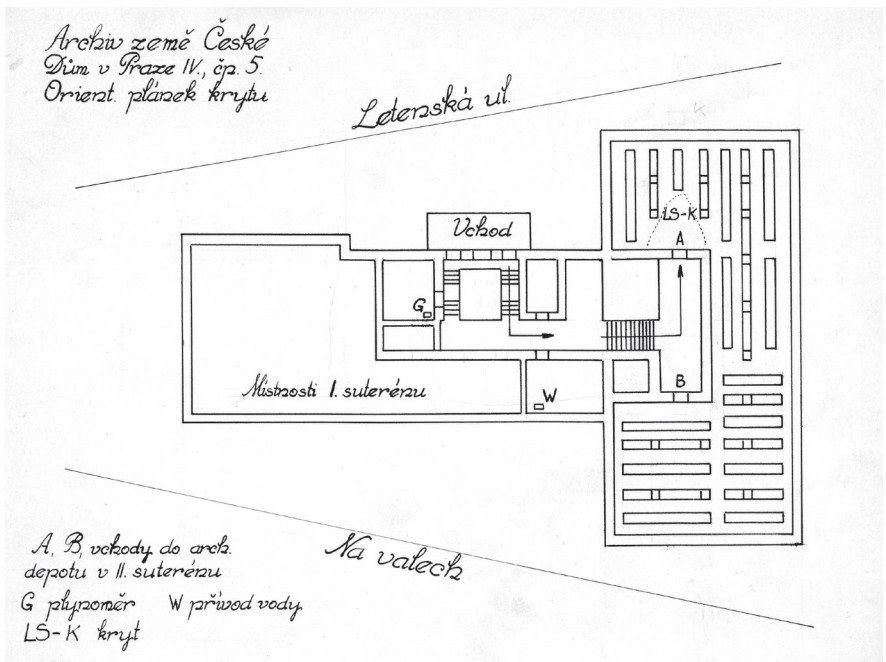 Archiv země České
Dům v Praze IV., čp. 5.
Orient. plánek krytu
Letenská ul.
Vchod
LS-K
A
G
Místnosti I. suterénu
W
B
Na valech
A, B, vchody do arch.
depotu v II. suterénu
G plynoměr W přívod vody.
LS-K kryt